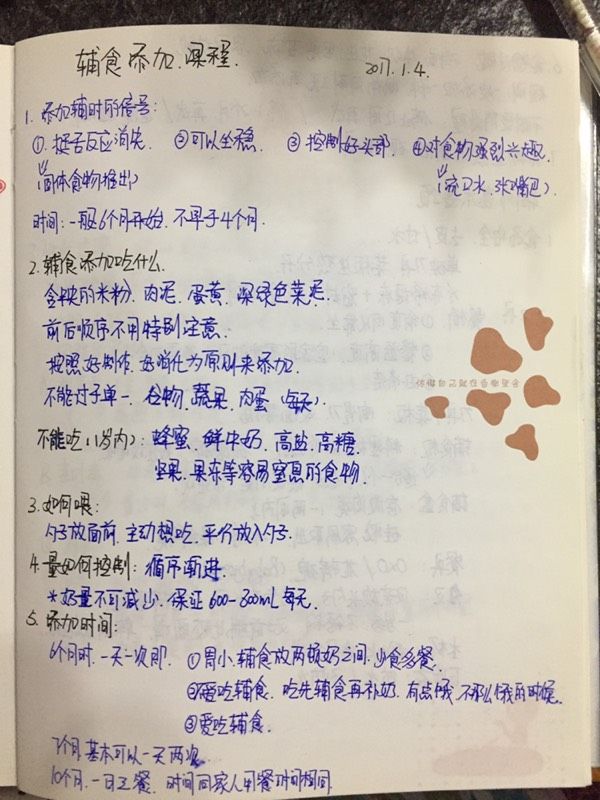 辅食添加课程.
2017.1.4.
1. 添加辅时的信号:
①. 挺舌反应消失 ②可以坐稳 ③ 控制好头部 ④对食物强烈兴趣.
(固体食物推出) (流口水.张嘴巴)
时间:一般6个月开始.不早于4个月.
2. 辅食添加吃什么.
含铁的米粉.肉泥.蛋黄.深绿色菜泥.
前后顺序不用特别注意.
按照好制作.好消化为原则来添加.
不能过于单一.谷物.蔬果.肉蛋(每天)
不能吃(1岁内):蜂蜜.鲜牛奶.高盐.高糖.
坚果.果冻等容易窒息的食物.
3. 如何喂:
勺子放面前.主动想吃.平行放入勺子.
4. 量如何控制:循序渐进.
*奶量不可减少.保证600-800mL每天.
5. 添加时间:
6个月时.一天一次即. ①胃小.辅食放两顿奶之间.少食多餐.
②爱吃辅食.吃先辅食再补奶.有点饿.不那么饿的时候.
③爱吃辅食.
7个月基本可以一天两次
10个月.一日三餐.时间同家人用餐时间相同.